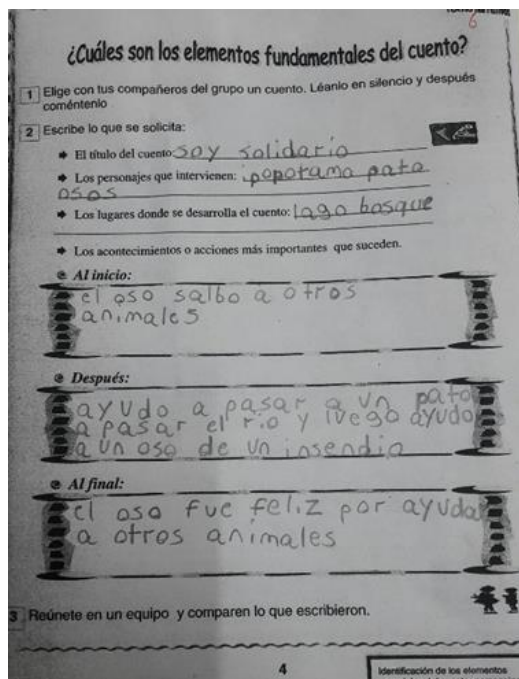 6
¿Cuáles son los elementos fundamentales del cuento?
1 Elige con tus compañeros del grupo un cuento. Léanlo en silencio y después
coméntenlo
2 Escribe lo que se solicita:
El título del cuento: soy solidario
Los personajes que intervienen: ipopotama pato
osos
Los lugares donde se desarrolla el cuento: lago bosque
Los acontecimientos o acciones más importantes que suceden.
Al inicio:
el oso salbo a otros
animales
Después:
ayudo a pasar a un pato
a pasar el rio y luego ayudo
a un oso de un insendio
Al final:
el oso fue feliz por ayuda
a otros animales
3 Reúnete en un equipo y comparen lo que escribieron.
4
Identificación de los elementos